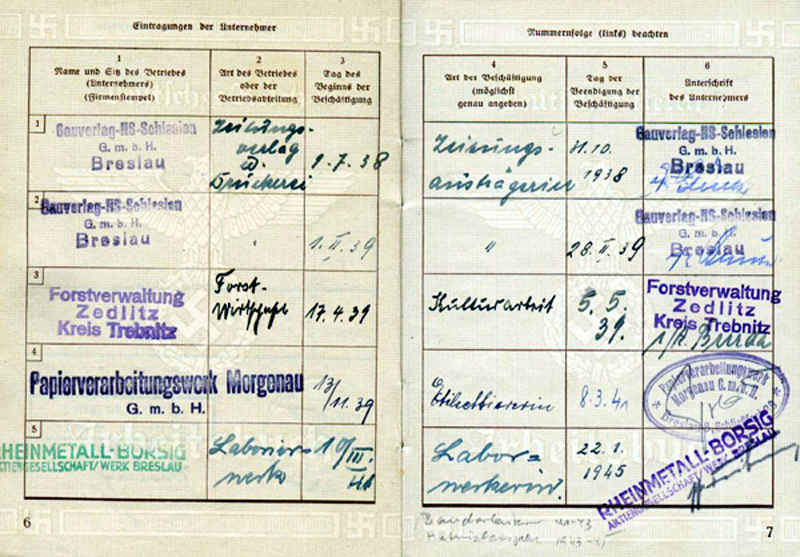 Eintragungen der Unternehmer
1
Name und Sitz des Betriebes
(Unternehmers)
(Firmenstempel)
2
Art des Betriebes
oder der
Betriebsabteilung
3
Tag des
Beginns der
Beschäftigung
1
Gauverlag-NS-Schlesien
G. m. b. H.
Breslau
Zeitungs-
verlag
u.
Druckerei
1.7.38
2
Gauverlag-NS-Schlesien
G. m. b. H.
Breslau
"
1. II. 39
3
Forstverwaltung
Zedlitz
Kreis Trebnitz
Forst-
Wirtschaft
17.4.39
4
Papierverarbeitungswerk Morgenau
G. m. b. H.
13/
11.39
5
RHEINMETALL-BORSIG
AKTIENGESELLSCHAFT/WERK BRESLAU
Laborier-
werk
10/
III.
41
6
Nummernfolge (links) beachten
4
Art der Beschäftigung
(möglichst
genau angeben)
5
Tag der
Beendigung der
Beschäftigung
6
Unterschrift
des Unternehmers
Zeitungs-
austrägerin
31.10.
1938
Gauverlag-NS-Schlesien
G. m. b. H.
Breslau
"
28. II. 39
Gauverlag-NS-Schlesien
G. m. b. H.
Breslau
Kulturarbeit
5. 5.
39.
Forstverwaltung
Zedlitz
Kreis Trebnitz
Etikettiererin
8.3.41
Papierverarbeitungswerk
Morgenau G.m.b.H.
Labor-
werkerin.
22.1.
1945
RHEINMETALL-BORSIG
AKTIENGESELLSCHAFT/WERK BRESLAU
41-43
1943-45
7